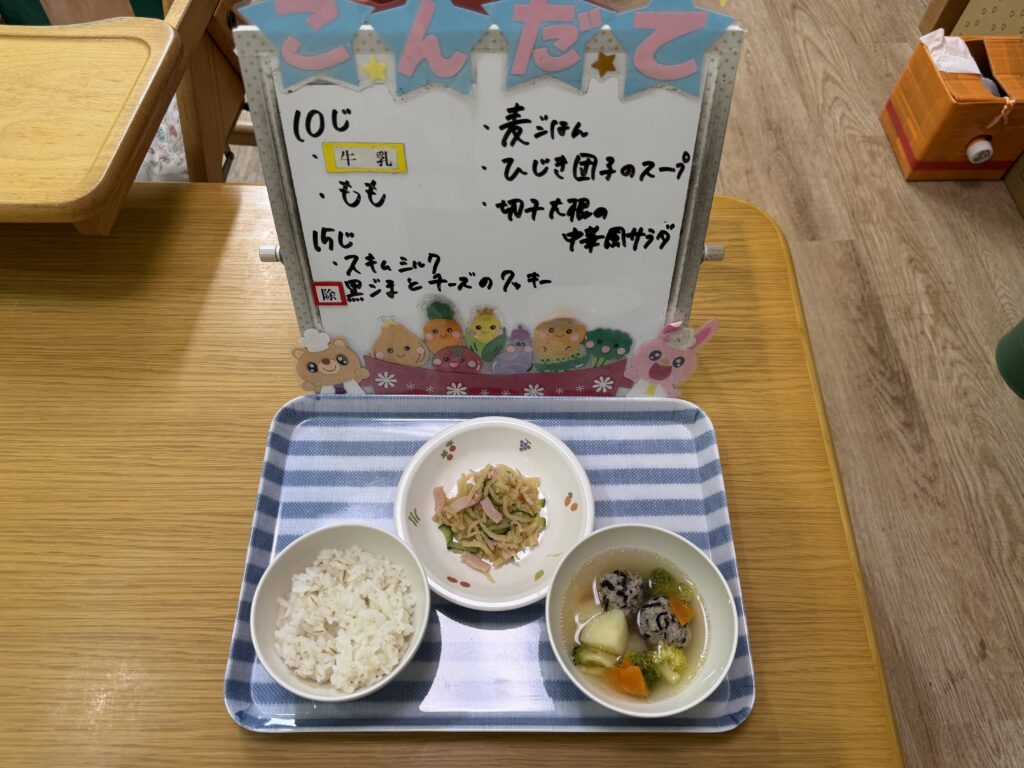 こんだて
10じ
・牛乳
・もも
15じ
・スキムミルク
除 黒ごまとチーズのクッキー
・麦ごはん
・ひじき団子のスープ
・切子大根の
中華風サラダ